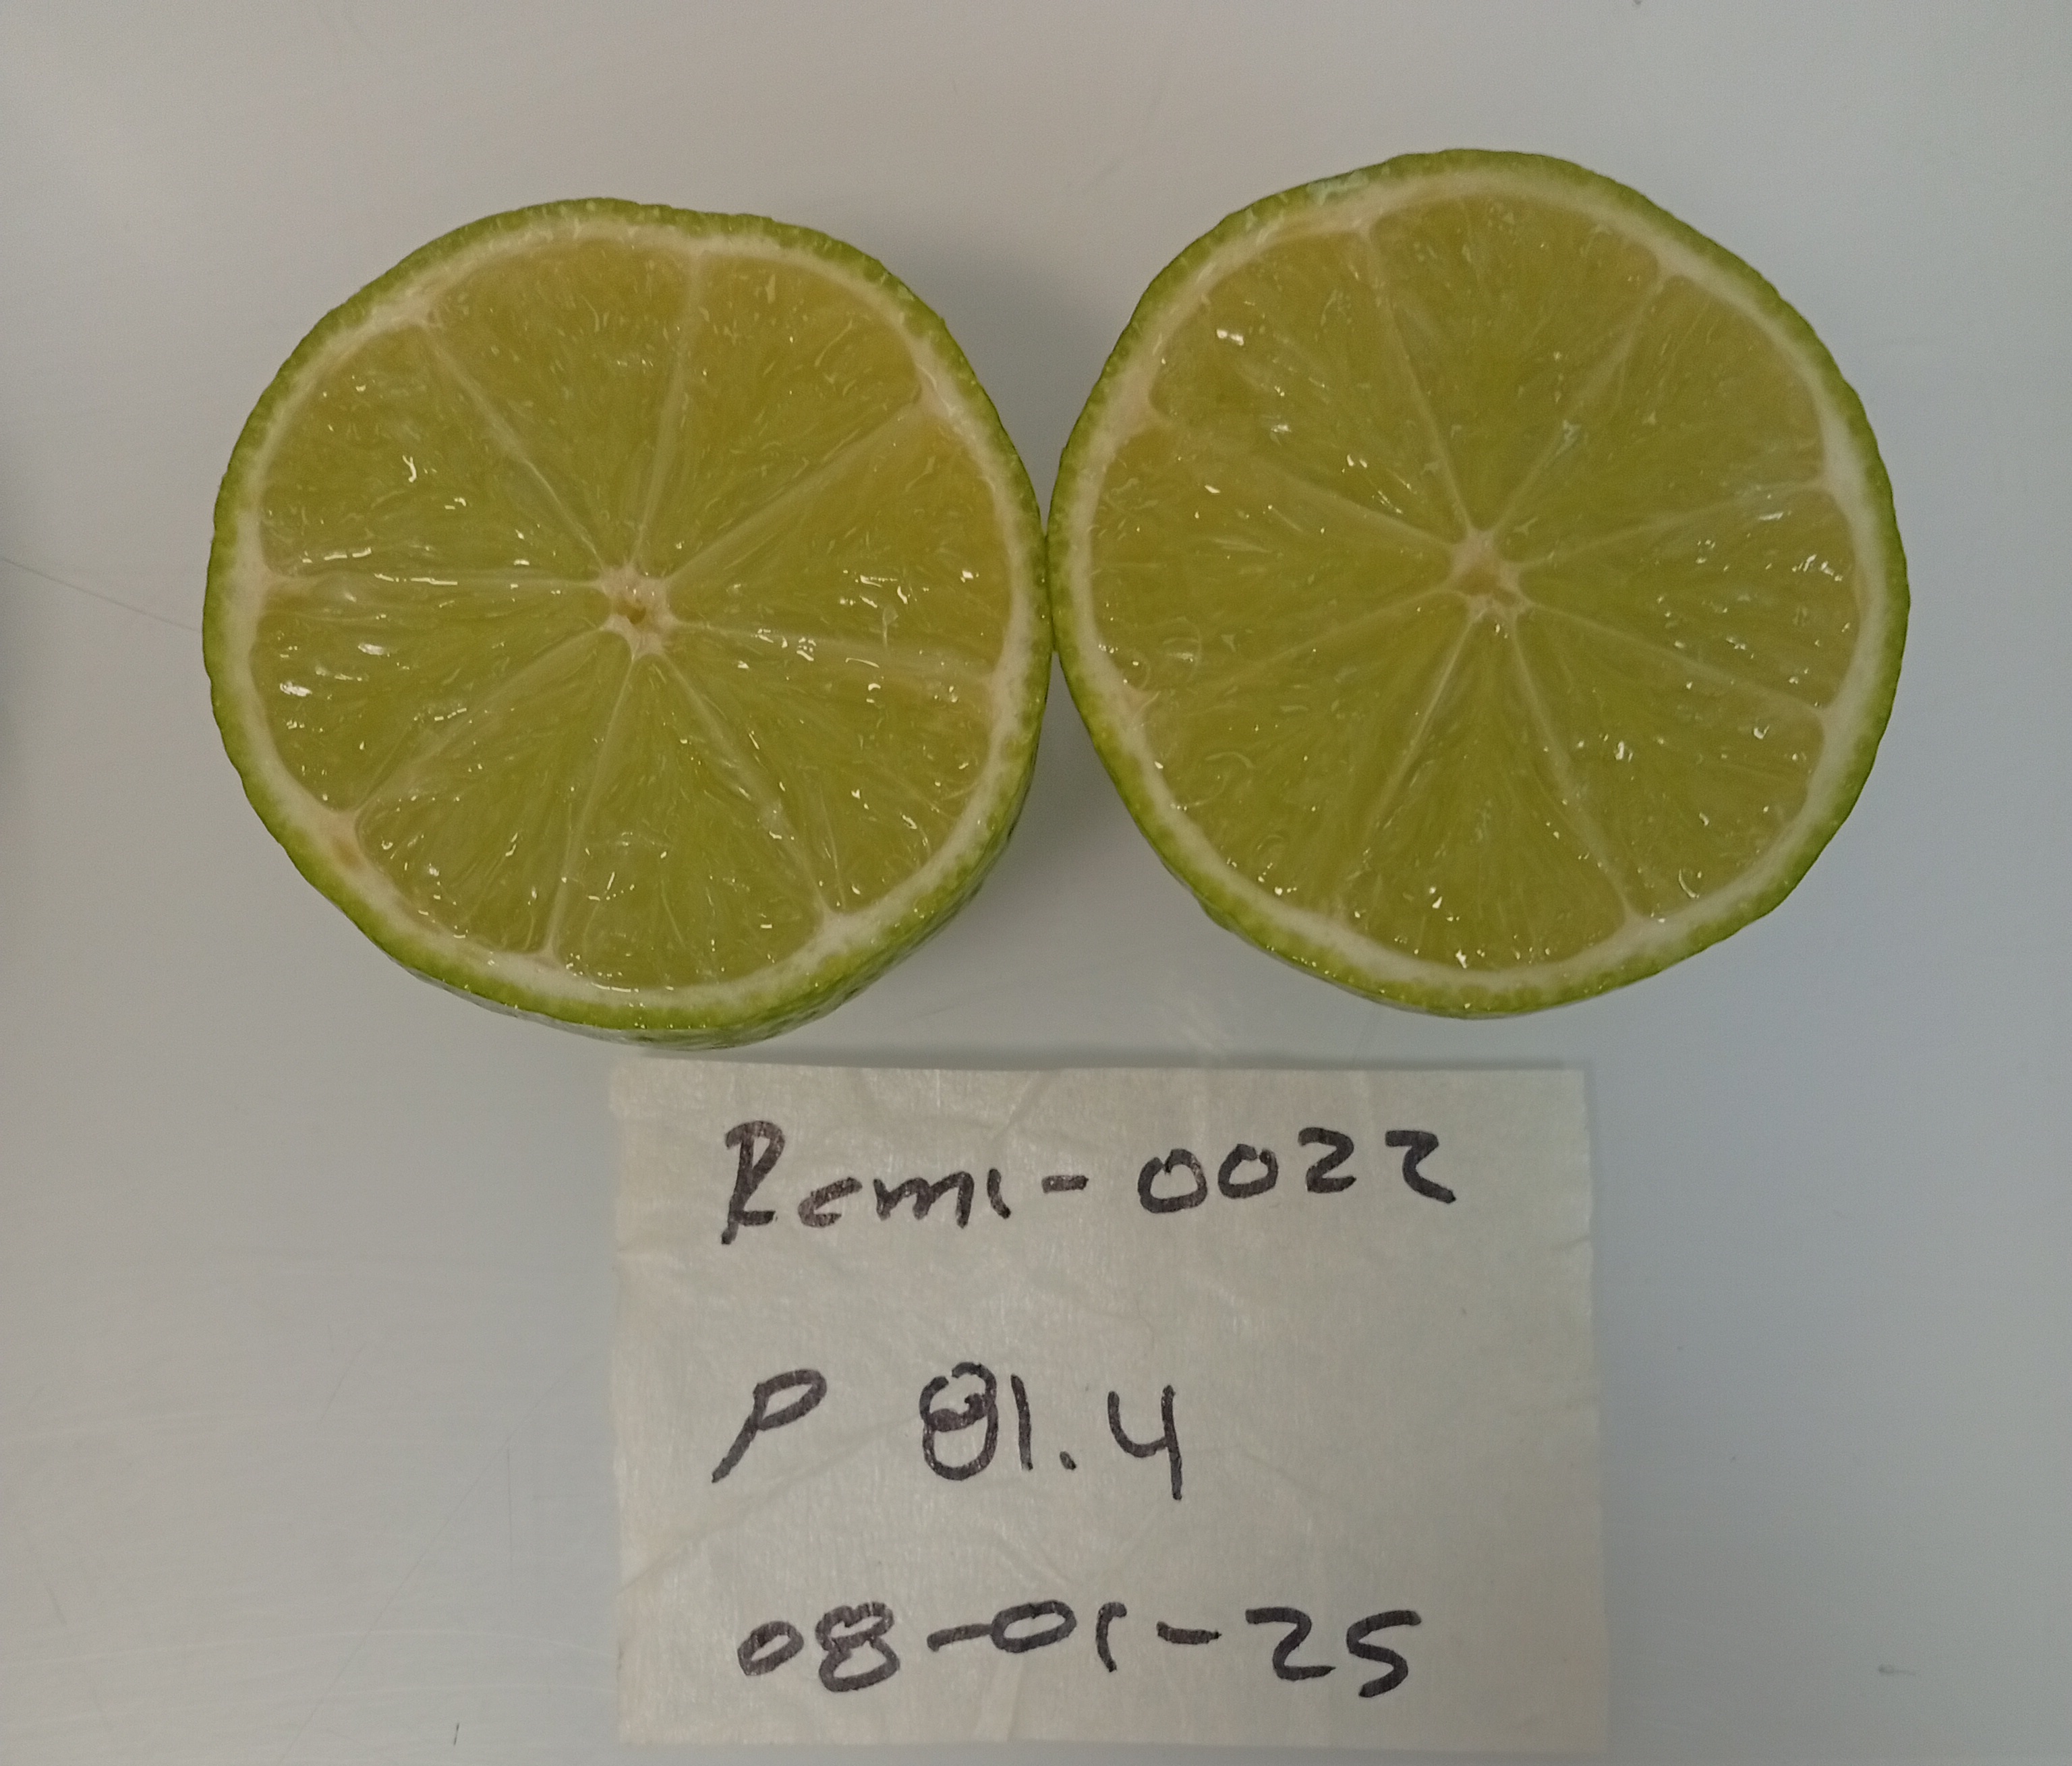 Remi-0022
P 81.4
08-01-25